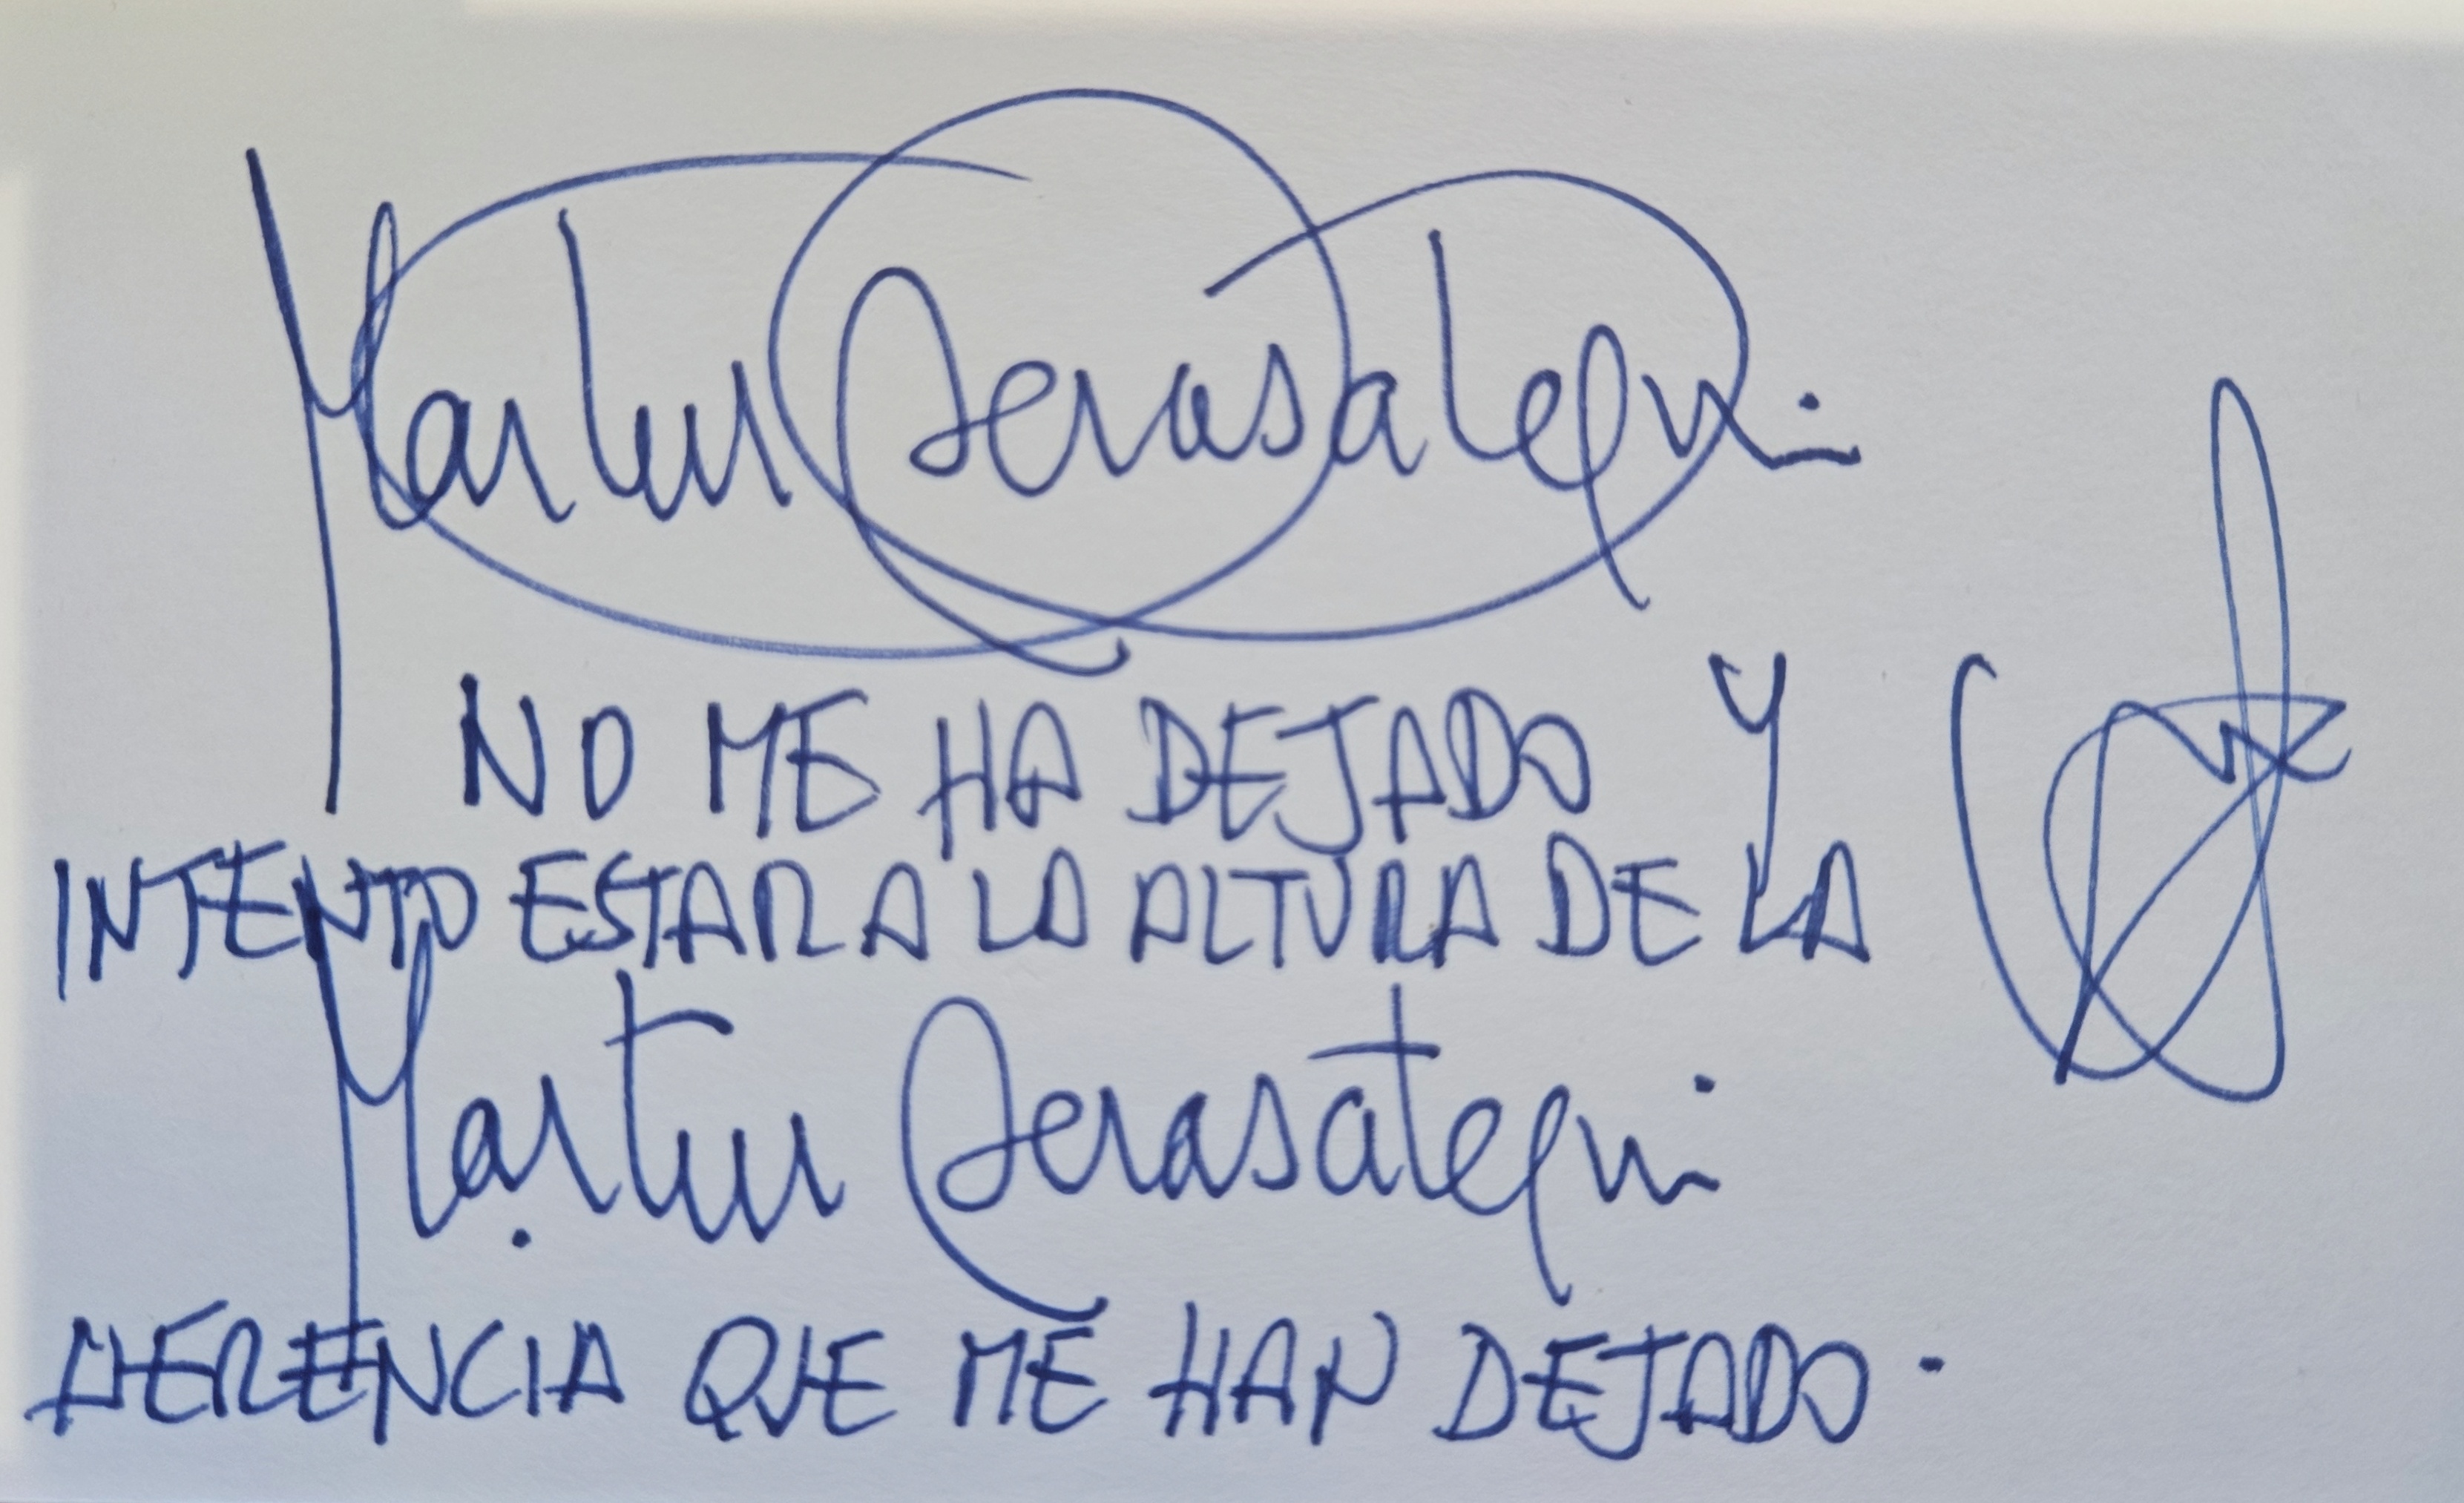 Martin Berasategui
NO ME HA DEJADO Y
INTENTO ESTAR A LA ALTURA DE LA
Martin Berasategui
HERENCIA QUE ME HAN DEJADO.